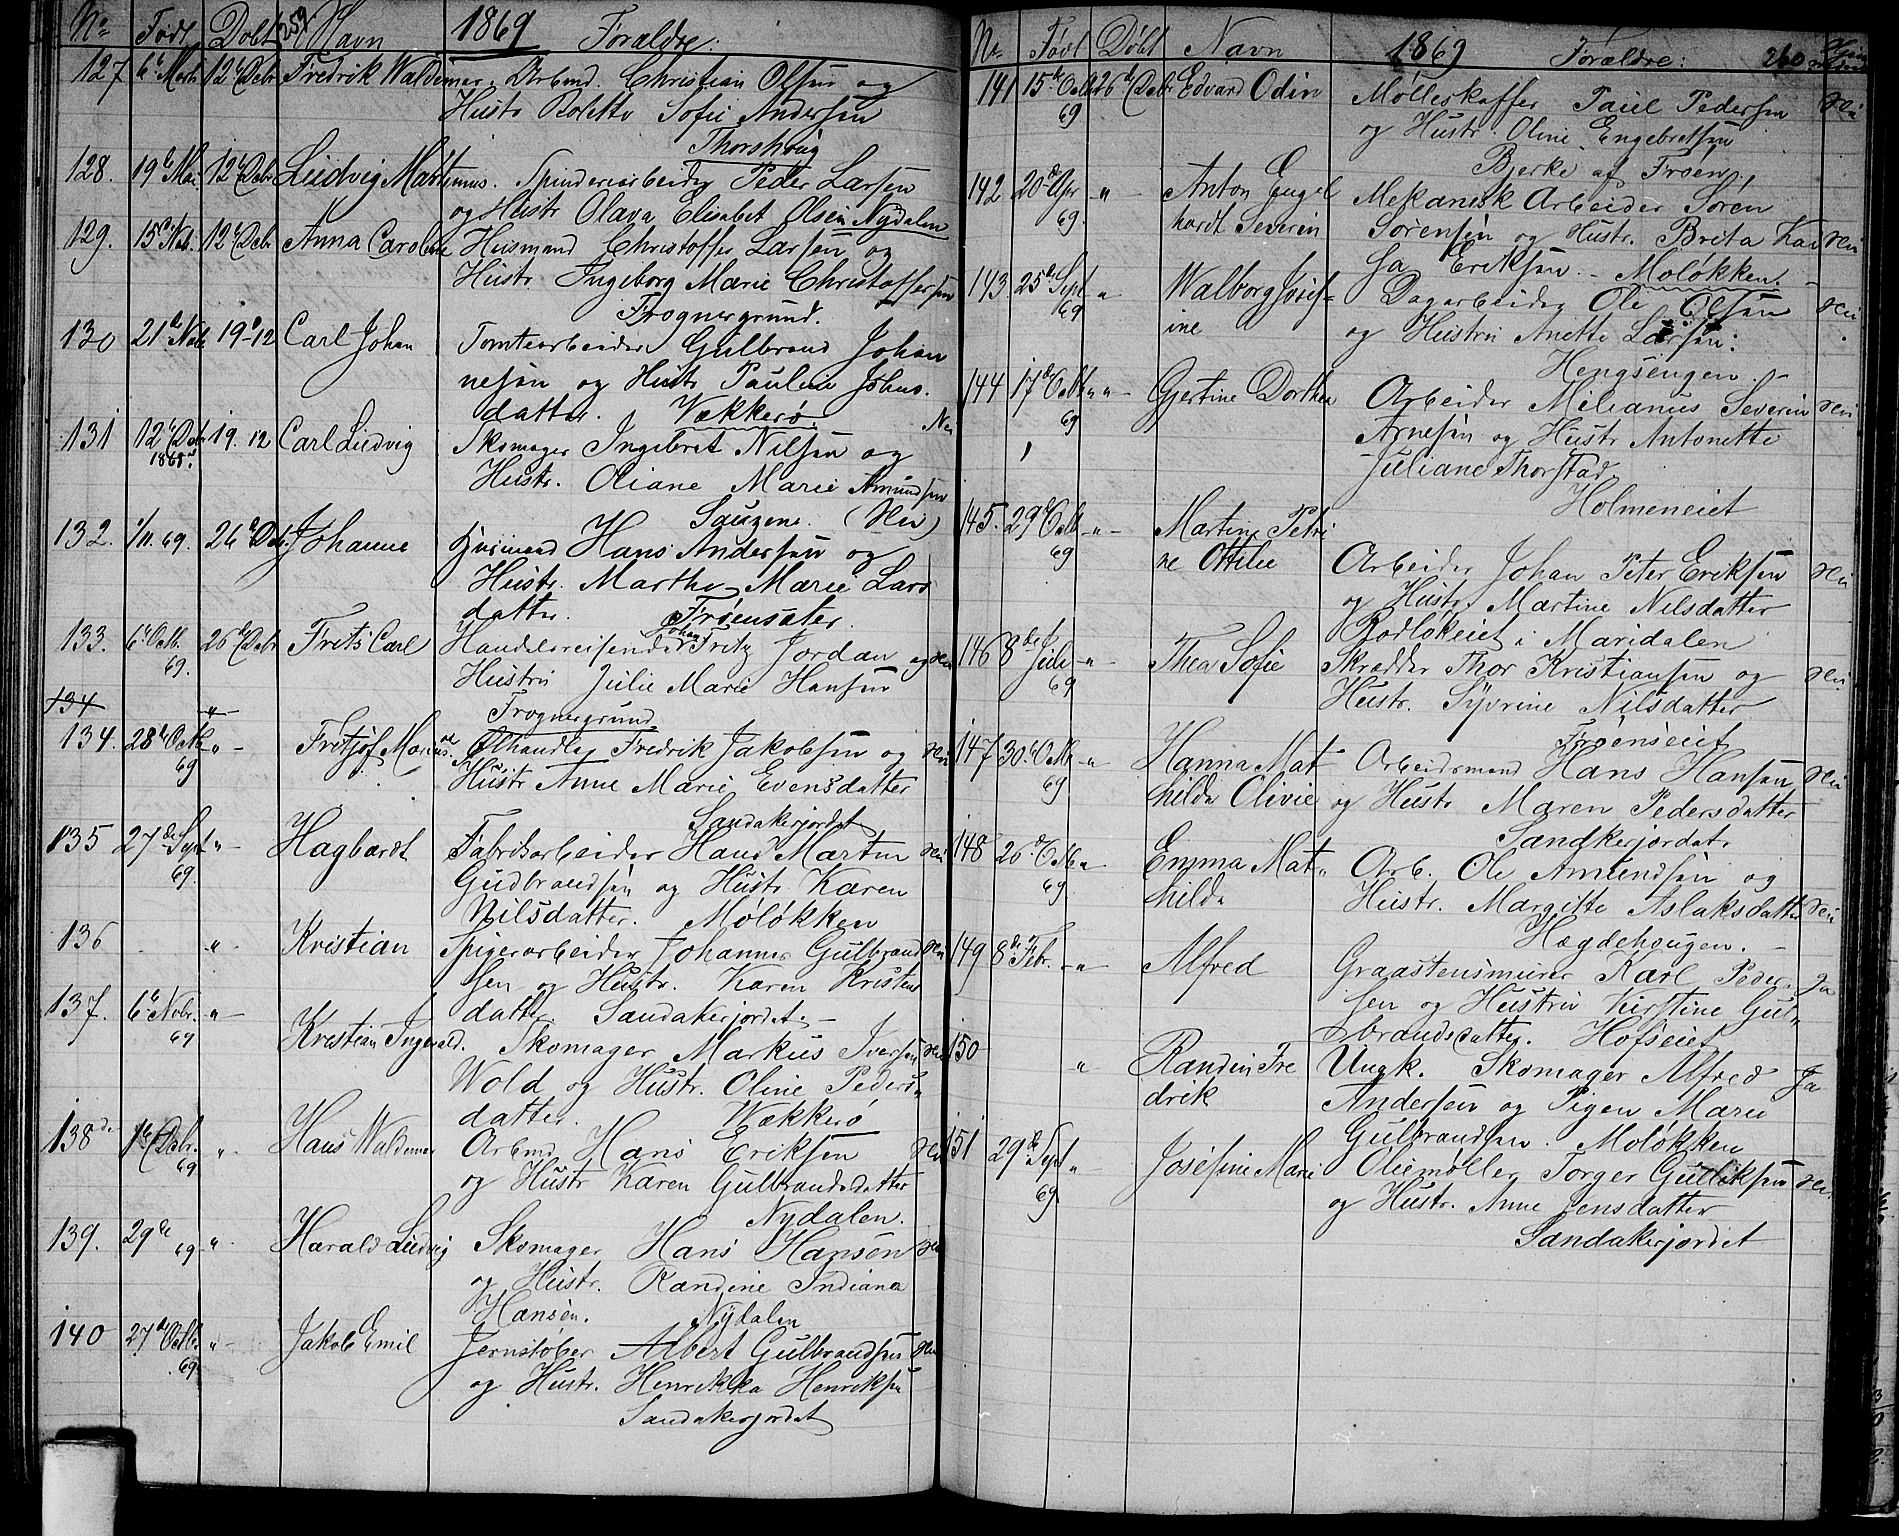 No Født Døbt 259 Navn 1869 Forældre:
127 6te Marts 12te Debr Fredrik Waldemar. Arbmd. Christian Olsen og
Hustr Rolette Sofie Andersen
Thorshoug
128. 19de Mai 12te Debr Ludvig Martinus. Spinderiarbeider Peder Larsen
og Hustr Olava Elisabet Olsen Nydalen
129. 15de Nov. 12te Debr Anna Caroline Husmand Christoffer Larsen og
Hustr Ingeborg Marie Christoffersen
Frognergrund.
130 21de Nov 19-12 Carl Johan Tomtearbeider Gulbrand Johan
nesen og Hustr Pauline Johns.
datter. Vækkerø.
131 12te Debr 1868. 19. 12 Carl Ludvig Skomager Ingebret Nilsen og Nei
Hustr. Oliane Marie Amundsen
Saugene. (Nei)
132. 1/11. 69. 26de Deb. Johanne Husmand Hans Andersen og
Hustr. Marthe Marie Lars
datter. Frøensæter.
133. 6te Octb. 69. 26de Debr Frets Carl Handelsreisende Johan Fritz Jordan og Nei
Hustru Julie Marie Hansen
134
Frognergrund
134. 28de Octb 69 " - Fritjof Marius. Ølhandler Fredrik Jakobsen og Nei
Hustr Anne Marie Evensdatter
Sandakerjordet
135 27de Sept 69. " - Hagbardt Fabrikarbeider Hans Martin Nei
Gudbrandsen og Hustr. Karen
Nilsdatter. Møløkken
136 " - Kristian Spigerarbeider Johannes Gulbrand Nei
sen og Hustr. Karen Kristens
137. 6te Novbr. 69 " - datter. Sandakerjordet. -
Kristian Ingvald. Skomager Markus Iversen Nei
Wold og Hustr. Oline Peders
datter. Wækkerø
138de 1te Debr. 69 " . Hans Waldemar Arbmd Hans Eriksen Nei
og Hustr Karen Gulbrandsdatter
Nydalen.
139. 29de 69 " . Harald Ludvig Skomager Hans Hansen Nei
og Hustr. Randine Indiana
Hansen. Nydalen
140 27de Octbr. 69 " - Jakob Emil Jernstøber Albert Gulbrandsen Nei
og Hustr. Henrikka Henriksen
Sandakerjordet
No Født Døbt Navn 1869 Forældre: 260
141 15de Octb 69 26de Debr Edvard Odin Mølleskaffer Paul Pedersen Nei
og Hustr Oline Engebretsen
Bjerke af Frøen.
142 20de Apr 69. - " - Anton Engel Mekanisk Arbeider Søren
hardt Severin Sørensen og Hustr. Brita Kai Nei
sa Eriksen. - Moløkken. -
143 25de Sept 69 " Walborg Josef- Dagarbeider Ole Olsen Nei
ine og Hustru Anette Larsen:
Hengsengen. -
144 17de Octb 69 " - Gjertine Dorthea Arbeider Milianus Severin Nei
Arnesen og Hustr Antonette
Juliane Thorstad
Holmeneiet
145. 29de Octb 69 - " - Martine Petri
ne Ottilie Arbeider Johan Peter Eriksen Nei
og Hustr. Martine Nilsdatter
Rodløkeiet i Maridalen
146 8de Juli 69 - " - Thea Sofie Skrædder Thor Kristiansen og Nei
Hustr. Syverine Nilsdatter
Frøenseiet
147 30de Octb 69 - " Hanna Mat Arbeidsmand Hans Hansen Nei
hilde Olivie og Hustr Maren Pedersdatter
Sandkerjordet.
148 26de Octb 69 " Emma Mat- Arb. Ole Amundsen og
hilda Hustr. Margitte Aslaksdatter Nei
Hægdehougen. -
149 8de Febr. - " Alfred Graastensmurer Karl Peder- Ja
sen og Hustru Kirstine Gul-
brandsdatter. Hofseiet
150 " Randin Fre Ungk. Skomager Alfred Ja
drik Andersen og Pigen Marie
Gulbrandsen. Moløkken
151 29de Sept 69 " Josefine Marie Oliemøller Torger Gulliksen Nei
og Hustr. Anne Jensdatter
Sandakerjordet